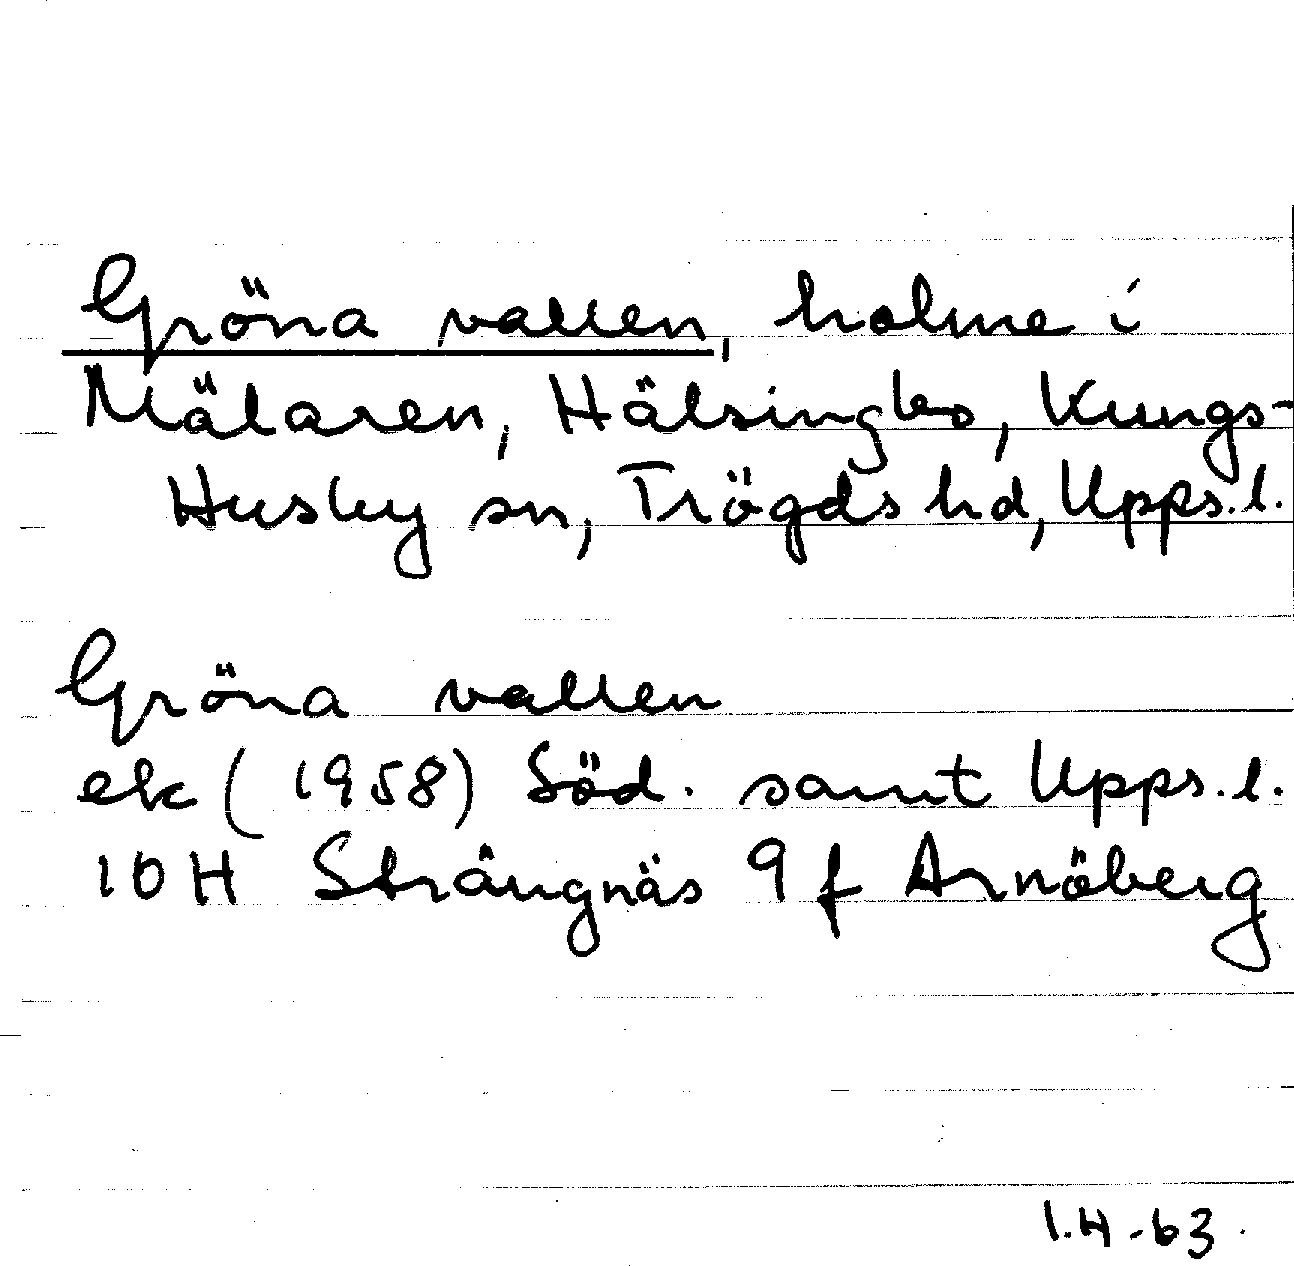 Gröna vallen, holme i
Mälaren, Hälsingbo, Kungs-
Husby sn, Trögds hd, Upps.l.
Gröna vallen
ek (1958) Söd. samt Upps.l.
10 H Strängnäs 9 f Arnöberg
I.H -63.